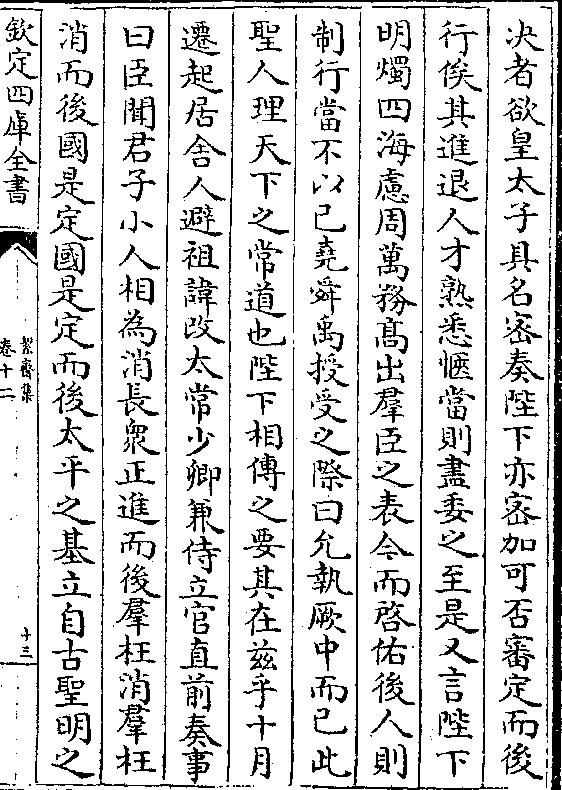 决者欲皇太子具名密奏陛下亦密加可否審定而後
行俟其進退人才熟悉愜當則盡委之至是又言陛下
明燭四海慮周萬務髙出羣臣之表今而啓佑後人則
制行當不以己堯舜禹授受之際曰允執厥中而已此
聖人理天下之常道也陛下相傳之要其在兹乎十月
遷起居舎人避祖諱改太常少卿兼侍立官直前奏事
曰臣聞君子小人相為消長衆正進而後羣枉消羣枉
消而後國是定國是定而後太平之基立自古聖明之
欽定四庫全書
絜齋集
卷十二
十三